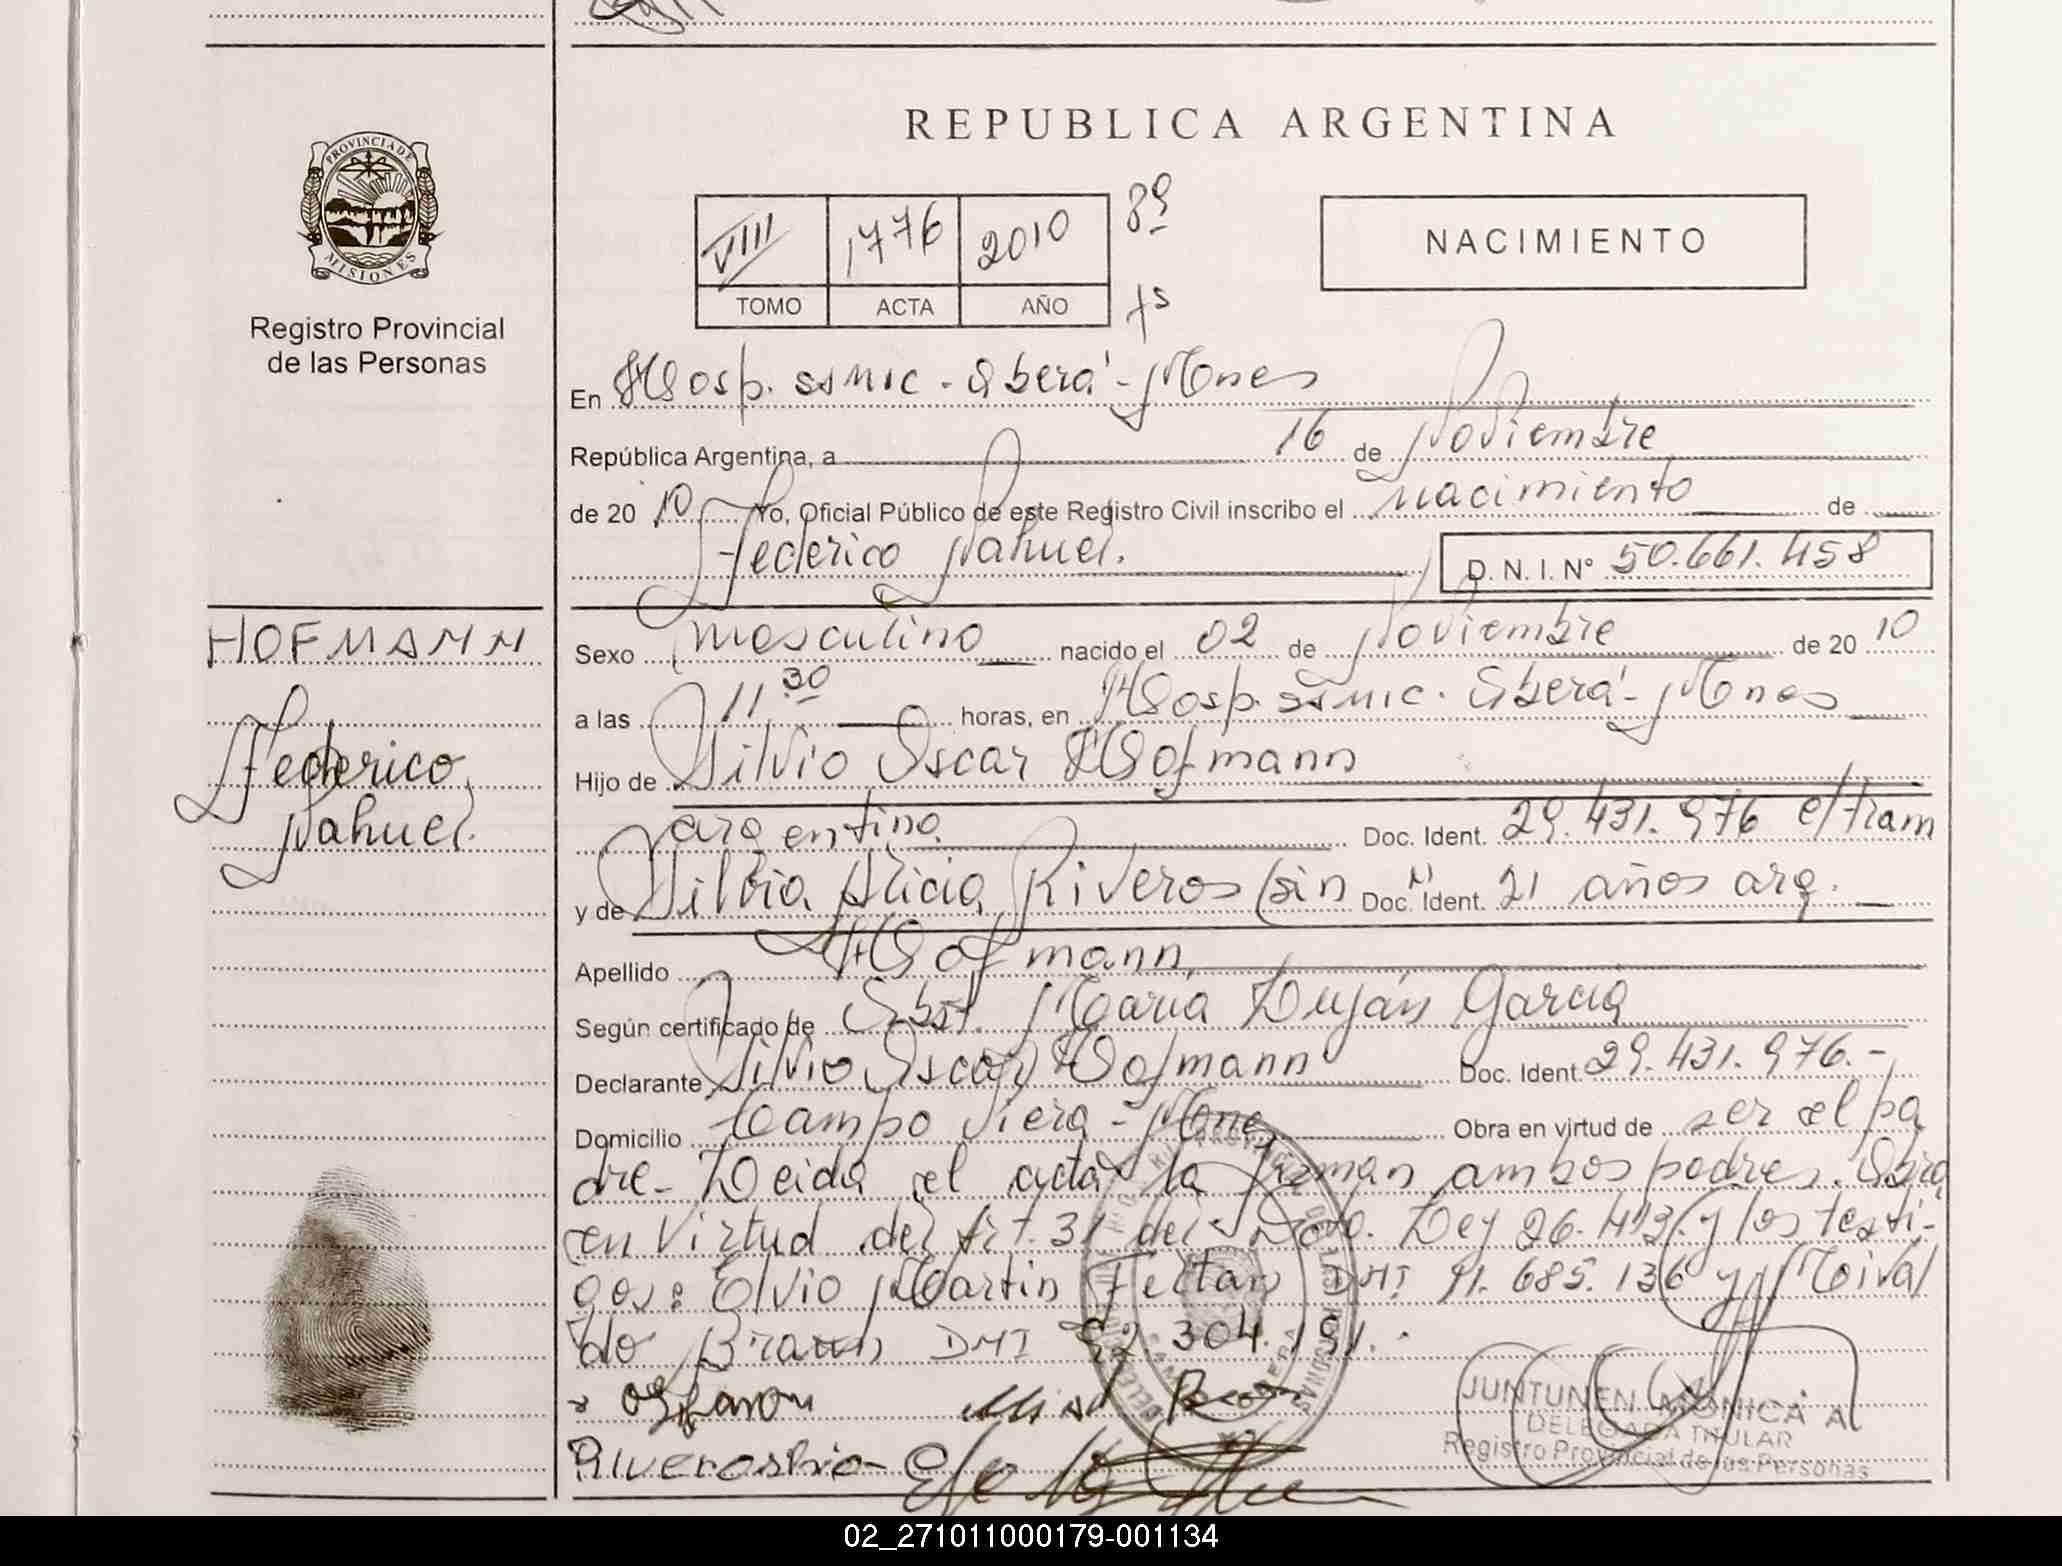 REPUBLICA ARGENTINA
PROVINCIA DE MISIONES
Registro Provincial
de las Personas
VIII 1776 2010 8º
TOMO ACTA AÑO fs
NACIMIENTO
En Hosp. SSMIC - Oberá - Mnes
República Argentina, a 16 de Noviembre
de 2010 Yo, Oficial Público de este Registro Civil inscribo el nacimiento de
Federico Nahuel. D. N. I. Nº 50.661.458
HOFMANN
Federico
Nahuel.
Sexo masculino nacido el 02 de Noviembre de 2010
a las 11 30 horas, en Hosp. SSMIC. Oberá - Mnes
Hijo de Silvio Oscar Hofmann
argentino Doc. Ident. 29.431.976 e/tram
y de Silvia Alicia Riveros (sin Doc. Ident. 21 años arg.
Apellido Hofmann
Según certificado de Obst. María Luján García
Declarante Silvio Oscar Hofmann Doc. Ident. 29.431.976.-
Domicilio Campo Viera - Mnes Obra en virtud de ser el pa
dre - Leida el acta la firman ambos padres. Obra
en virtud del Art. 31 del Dcto. Ley 26.413 y los testi-
gos: Elvio Martin DNI 11.685.136 y
do DNI 304.191.
JUNTUNEN MONICA A
DELEGADA TITULAR
Registro Provincial de las Personas
02_271011000179-001134